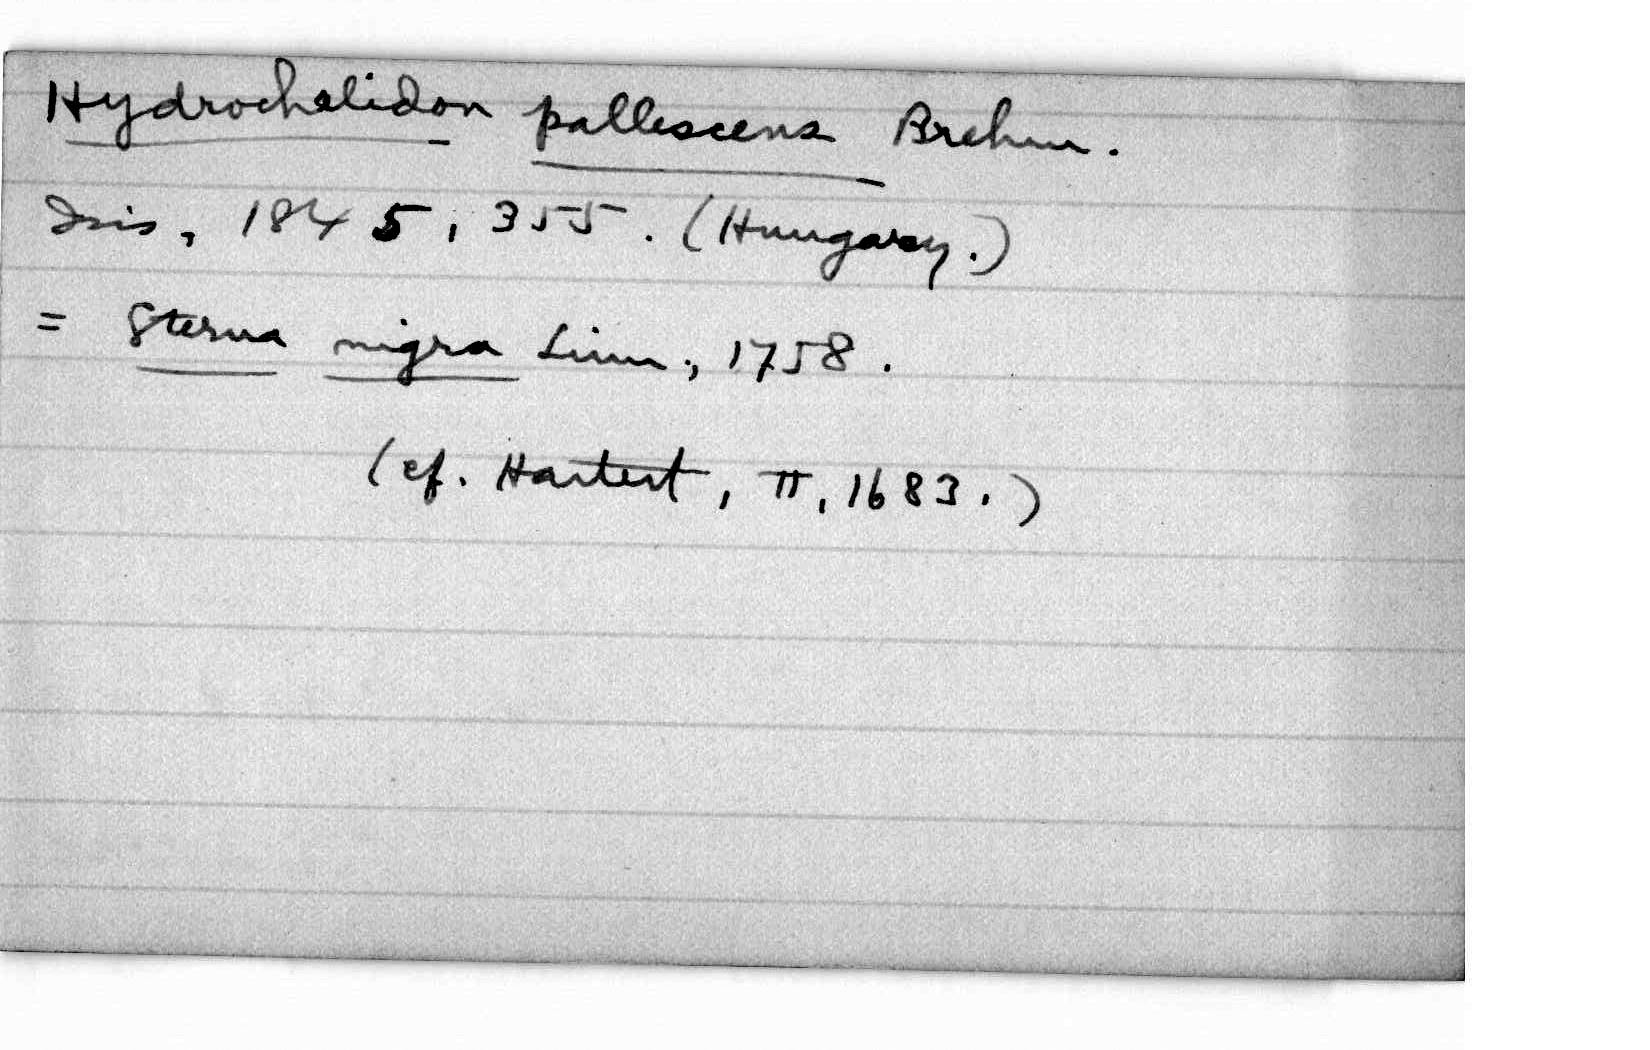 Hydrochelidon pallescens Brehm.
Isis, 1845, 355. (Hungary.)
= Sterna nigra Linn., 1758.
(cf. Hartert, II, 1683.)